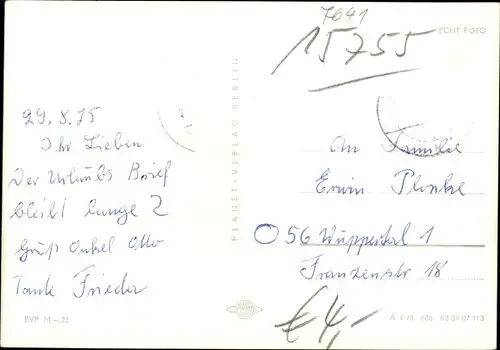 7641
15755
ECHT FOTO
29.8.75
Ihr Lieben
Der Urlaubs Brief
bleibt lange
Gruß Onkel Otto
Tante Frieda
An Familie
Erwin
56 Wuppertal 1
Franzenstr 18
PLANET-VERLAG BERLIN
€ 4,-
EVP M -,25
A 8 75 606 02 04 07 113